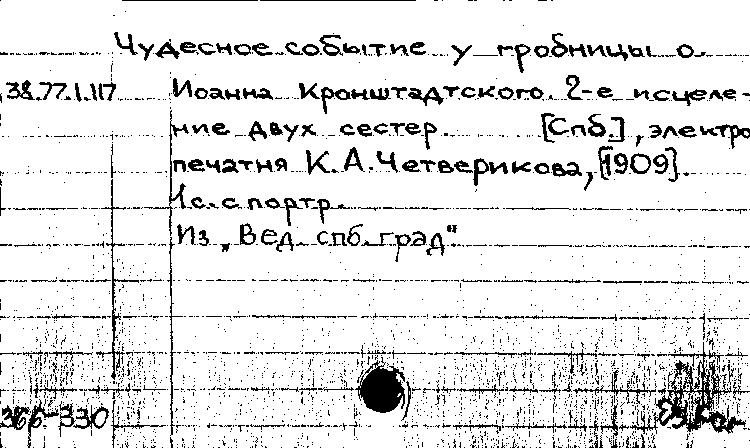 Чудесное событие у гробницы о.
38.77.1.117 Иоанна Кронштадтского. 2-е исцеле-
ние двух сестер. [Спб.], электро
печатня К.А.Четверикова, [1909].
1с. с портр.
Из „Вед. спб. град"
366-330